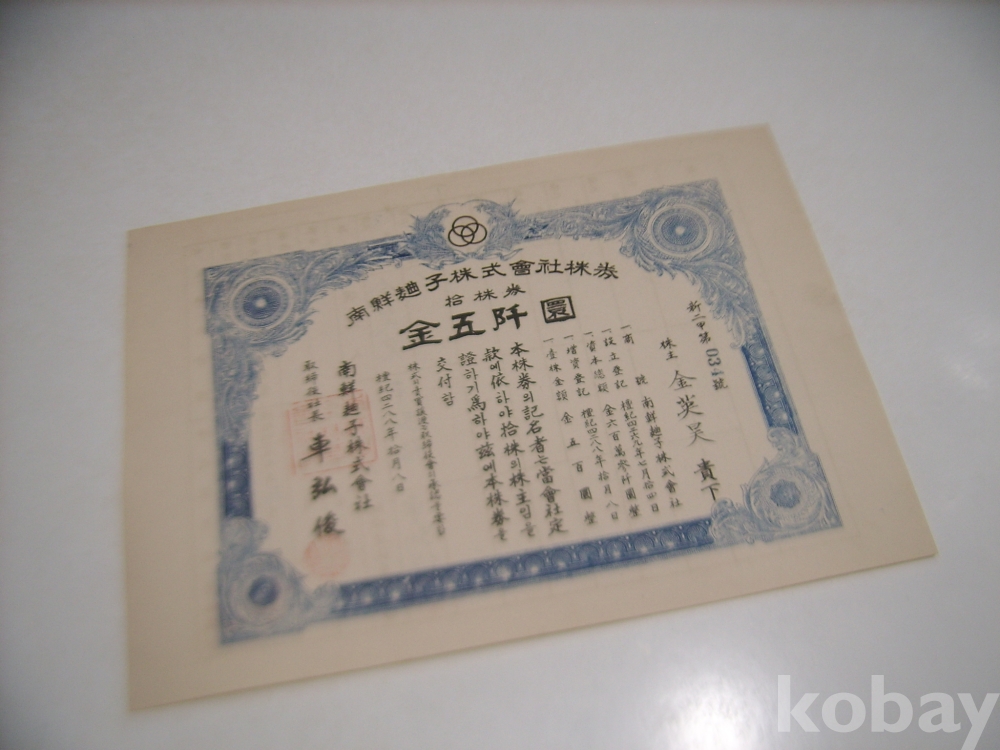 南鮮麯子株式會社株券
拾株券
金五阡圜
新二甲第 03 號
株主 金英昊 貴下
一商號 南鮮麯子株式會社
一設立登記 檀紀四二六九年七月拾四日
一資本總額 金六百萬參阡圜整
一增資登記 檀紀四二八八年拾月八日
一壹株金額 金五百圜整
本株券의記名者는當會社定
款에依하야拾株의株主임을
證하기爲하야玆에本株券을
交付함
檀紀四二八八年拾月八日
南鮮麯子株式會社
取締役社長 車弘俊
kobay